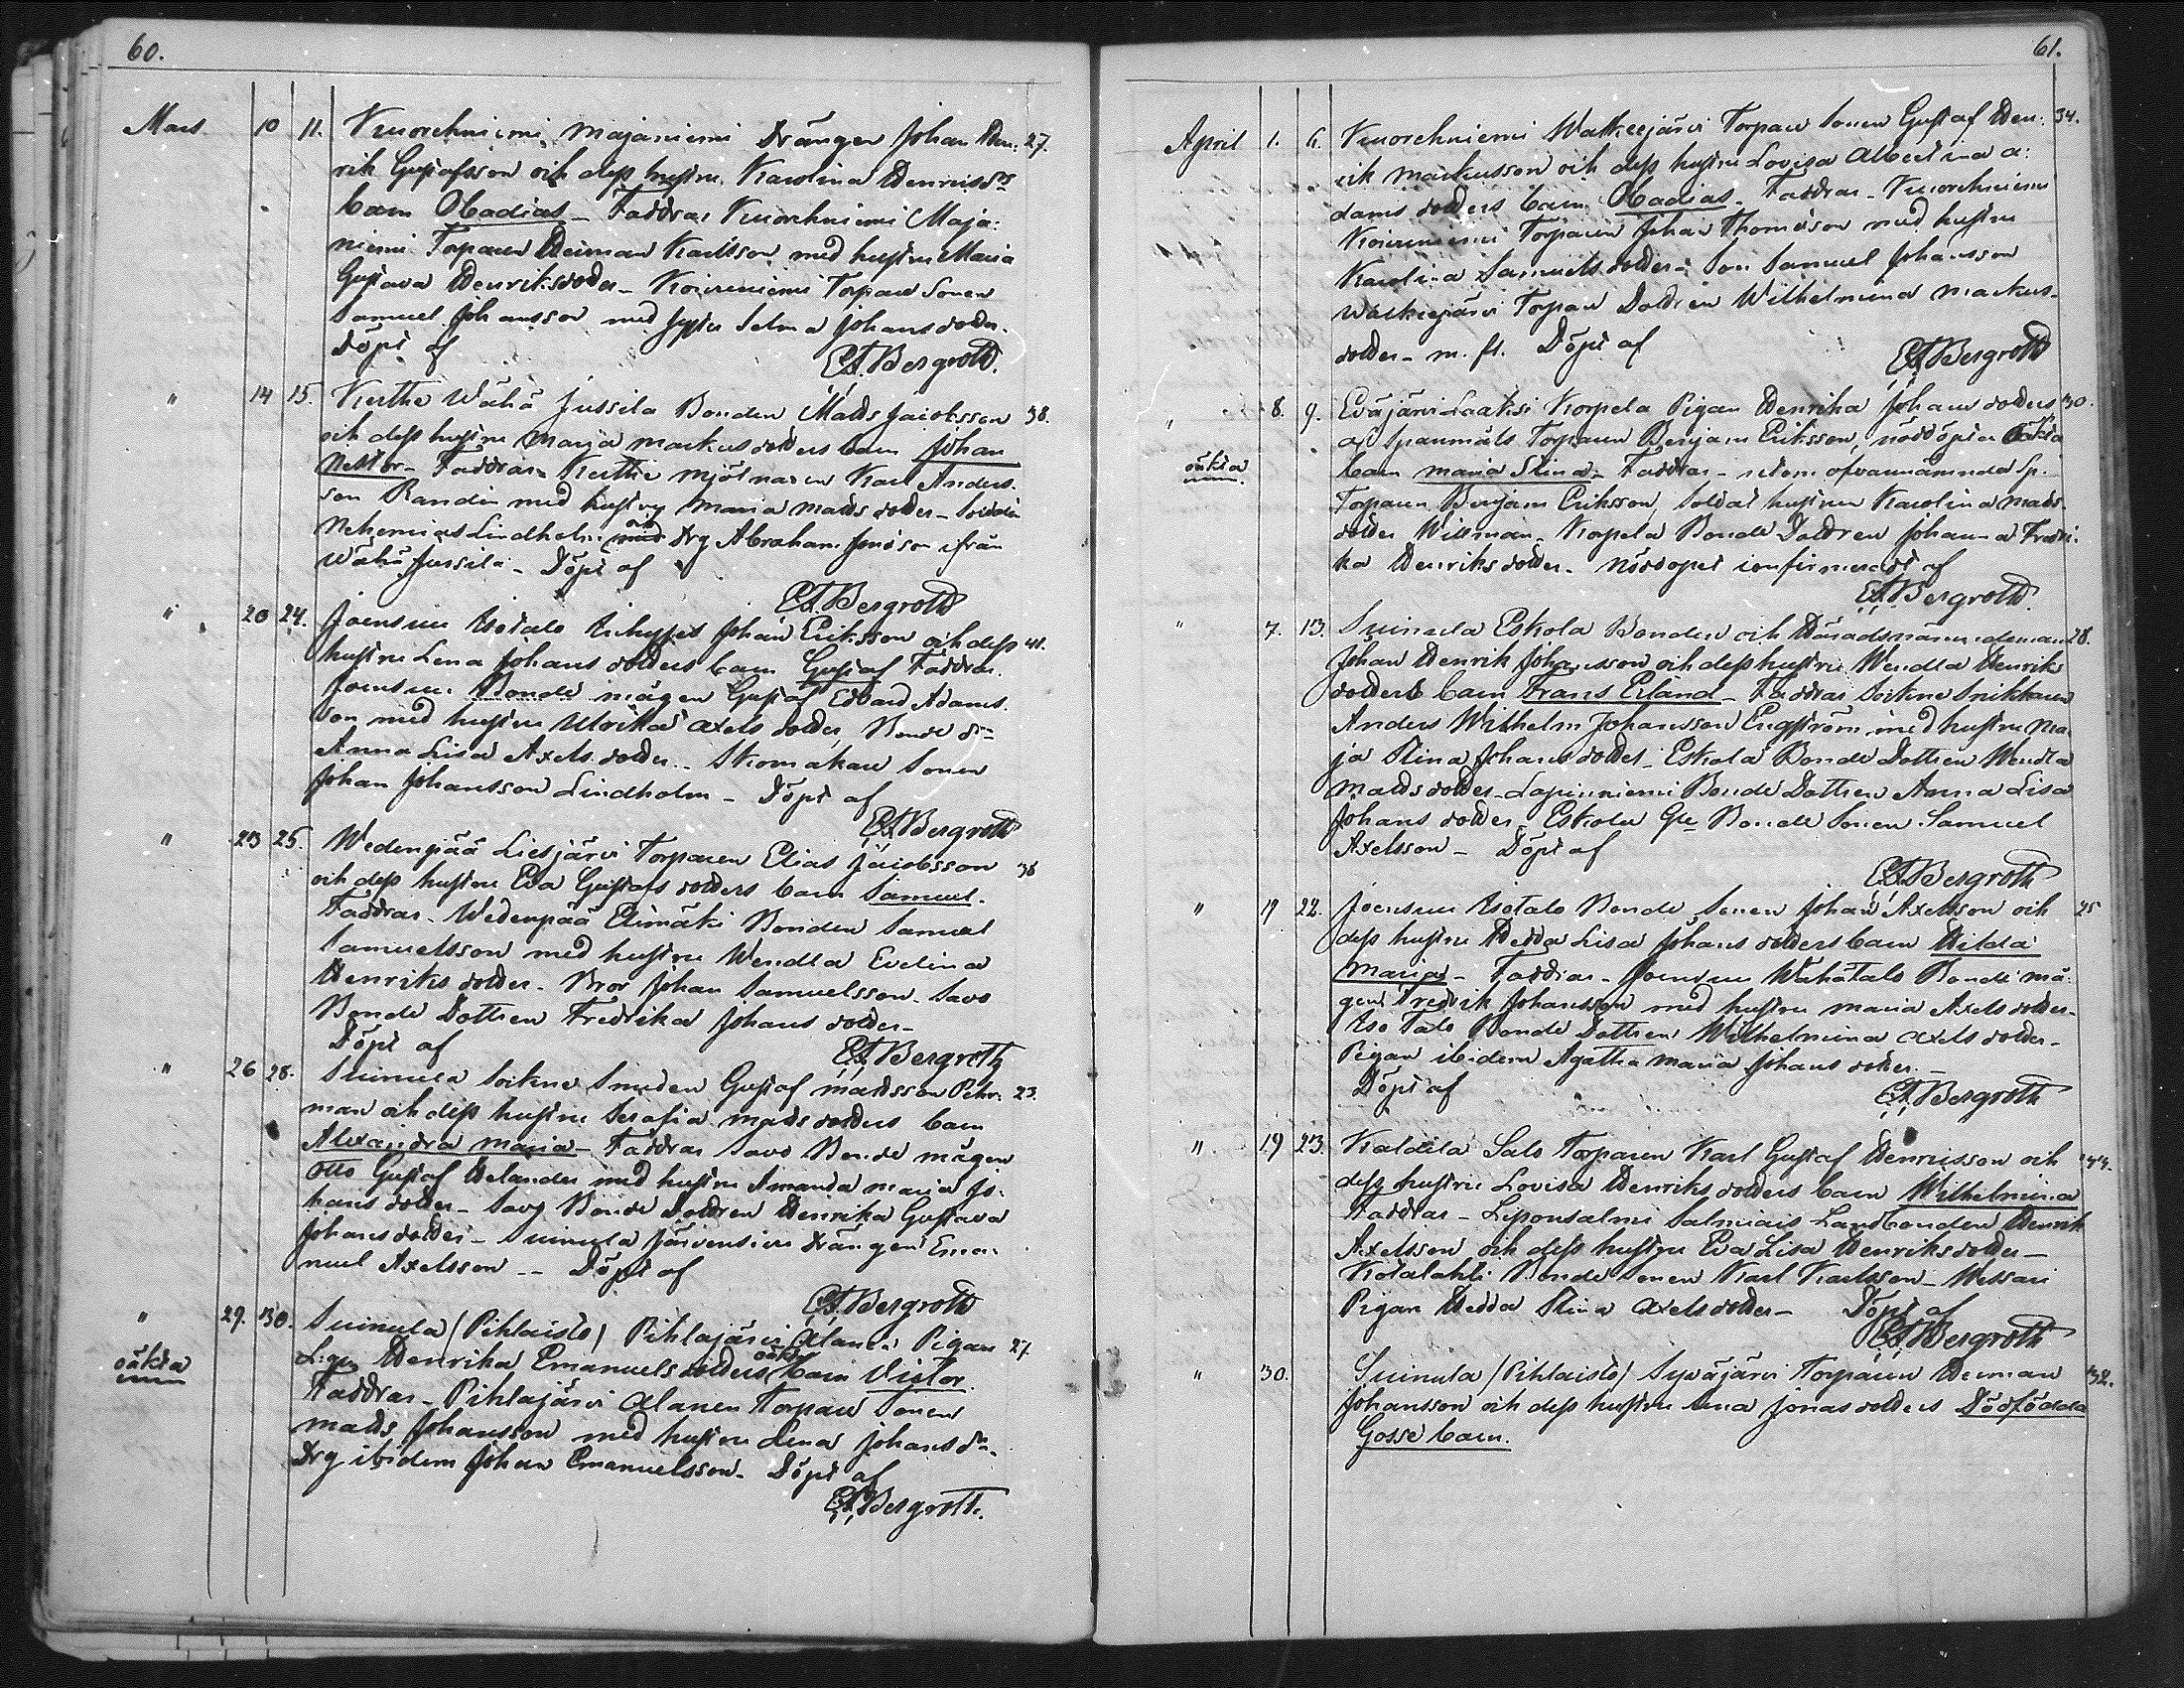 60.
Mars 10 11. Kuorehniemi, Majaniemi Drängen Johan Hen: 27.
rik Gustafsson och dess hustru Karolina Henriksdrs
barn Obadias – Faddrar Kuorehniemi Maja:
niemi Torparen Herman Karlsson med hustru Maria
Gustava Henriksdotter – Koivuniemi Torpare Sonen
Samuel Johansson med hustru Selma Johansdotter.
Döpt af
E.A.Bergroth.
" 14 15. Kuthe Wähä Jussila Bonden Matts Jacobsson 38.
och dess hustru Marja Markusdotters barn Johan
Nestor – Faddrar – Kuthe mjölnaren Karl Anders-
son Randin med hustru Maria Mattsdotter –
Nehemias Lindholm och Drg Abraham Jonsson ifrån
Wähä Jussila – Döpt af
E.A.Bergroth
" 20 24. Joensuu Isotalo Inhyses Johan Eriksson och dess 41.
hustru Lena Johansdotters barn Gustaf Faddrar.
Joensuu Bonde mågen Gustaf Edvard Adams-
son med hustru Ulrika Axelsdotter, Bonde drn
Anna Lisa Axelsdotter – Skomakare Sonen
Johan Johansson Lindholm – Döpt af
E.A.Bergroth
" 23 25. Wedenpää Liesjärvi Torparen Elias Jacobsson 38
och dess hustru Eva Gustafsdotters barn Samuel.
Faddrar – Wedenpää Elimäki Bonden Samuel
Samuelsson med hustru Wendla Evelina
Henriksdotter – Bror Johan Samuelsson – Savo
Bonde Dottren Fredrika Johansdotter –
Döpt af
E.A.Bergroth
" 26 28. Suinula Sockne Smeden Gustaf Mattsson Pehr- 23.
man och dess hustru Serafia Mattsdotters barn
Alexandra Maria – Faddrar Savo Bonde mågen
Otto Gustaf Helander med hustru Amanda Maria Jo-
hansdotter – Savo Bonde Dottren Henrika Gustava
Johansdotter – Suinula Järvensivu Drängen Ema-
nuel Axelsson – Döpt af
E.A.Bergroth
" 29. 30. Suinula (Pihlaisto) Pihlajärvi Alanen Pigan 27.
oäkta
Henrika Emanuelsdotters oäkta barn Victor.
Faddrar – Pihlajärvi Alanen Torpare Sonen
Matts Johansson med hustru Lena Johansdr.
Drg ibidem Johan Emanuelsson – Döpt af
E.A.Bergroth.
61.
April 1. 6. Kuorehniemi Walkeejärvi Torpare Sonen Gustaf Hen: 34.
rik Markusson och dess hustru Lovisa Albertina A:
damsdotters barn Obadias – Faddrar – Kuorehniemi
Koivuniemi Torparen Johan Thomasson med hustru
Karolina Samuelsdotter – Son Samuel Johansson
Walkeejärvi Torpare Dottren Wilhelmina Markus-
dotter – m. fl. Döpt af
E.A.Bergroth
" 8. 9. Eväjärvi Laaksi Korpela Pigan Henrika Johansdotters 30.
oäkta
af Spanmåls Torparen Benjam Eriksson, nöddöpta oäkta
barn Maria Stina – Faddrar – utom ofvannämnda Sp.
Torparen Benjam Eriksson, Soldat hustrun Karolina Matts-
dotter Willman – Korpela Bonde Dottren Johanna Fredri-
ka Henriksdotter – Nöddopet confirmeradt af
E.A.Bergroth.
" 7. 13. Suinula Eskola Bonden och Häradsnämndeman 28.
Johan Henrik Johansson och dess hustru Wendla Henriks
dotters barn Frans Erland – Faddrar Sockne Snikkaren
Anders Wilhelm Johansson Engström med hustru Ma-
ja Stina Johansdotter – Eskola Bonde Dottren Wendla
Mattsdotter – Lapinniemi Bonde Dottren Anna Lisa
Johansdotter – Eskola Gle Bonde Sonen Samuel
Axelsson – Döpt af
E.A.Bergroth
" 19 22. Joensuu Isotalo Bonde Sonen Johan Axelsson och 25
dess hustru Hedda Lisa Johansdotters barn Hilda
Maria – Faddrar – Joensuu Wähätalo Bonde må-
gen Fredrik Johansson med hustru Maria Axelsdotter –
Iso Talo Bonde Dottren Wilhelmina Axelsdotter –
Pigan ibidem Agatha Maria Johansdotter –
Döpt af
E.A.Bergroth
" 19 23. Kaldila Salo Torparen Karl Gustaf Henricsson och 44.
dess hustru Lovisa Henriksdotters barn Wilhelmina
Faddrar – Liponsalmi Salmiais Landbonden Henrik
Axelsson och dess hustru Eva Lisa Henriksdotter –
Kotalahti Bonde Sonen Karl Karlsson – Wessari
Pigan Hedda Stina Axelsdotter – Döpt af
E.A.Bergroth
" 30. Suinula (Pihlaisto) Syväjärvi Torparen Herman 32.
Johansson och dess hustru Anna Jonasdotters Dödfödda
Gosse barn.